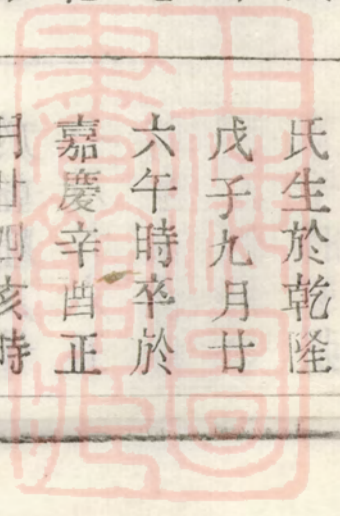 氏生於乾隆
戊子九月廿
六午時卒於
嘉慶辛酉正
月廿四亥時